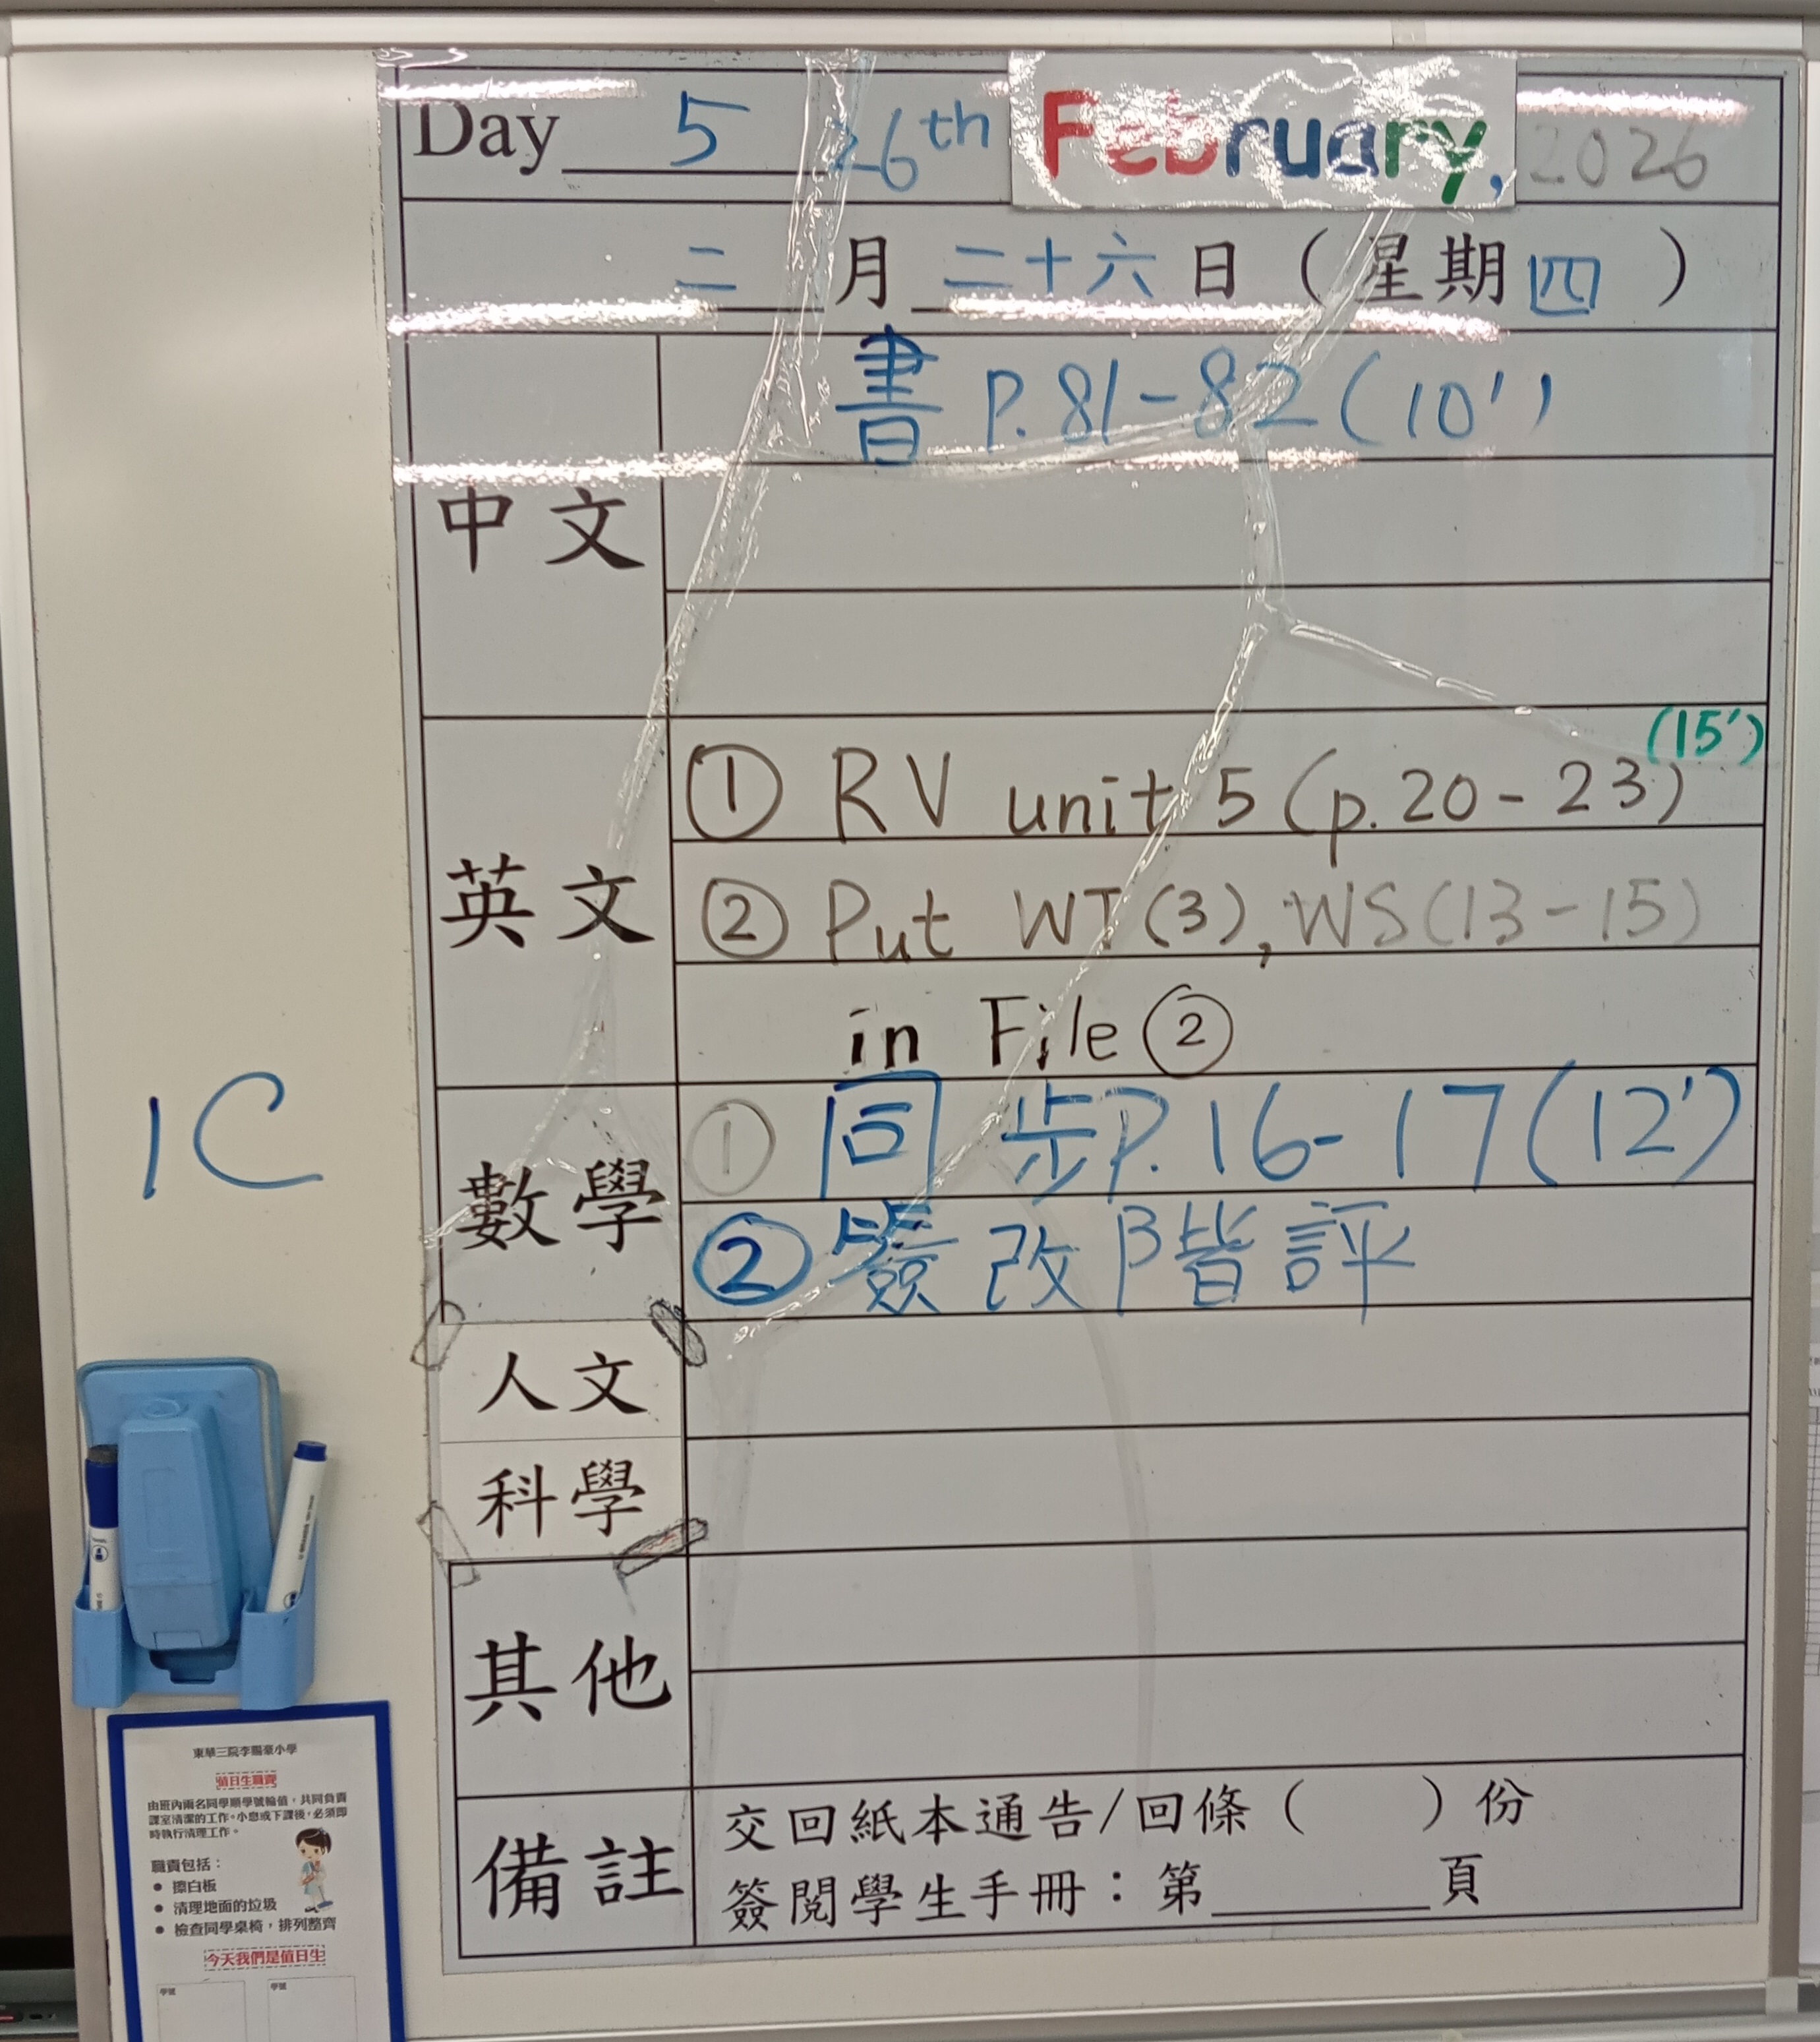 Day 5 26th February, 2026
二 月 二十六 日 ( 星期 四 )
中文
書 P.81-82 (10')
英文
(15')
① RV unit 5 (p.20-23)
② Put WT(3), WS(13-15)
in File ②
數學
① 同步P.16-17(12')
② 簽改階評
人文
科學
其他
備註
交回紙本通告/回條 ( ) 份
簽閱學生手冊：第______頁
1C
東華三院李賜豪小學
值日生職責
由班內兩名同學順學號輪值，共同負責
課室清潔的工作。小息或下課後，必須即
時執行清理工作。
職責包括：
● 擦白板
● 清理地面的垃圾
● 檢查同學桌椅，排列整齊
今天我們是值日生
學號 學號